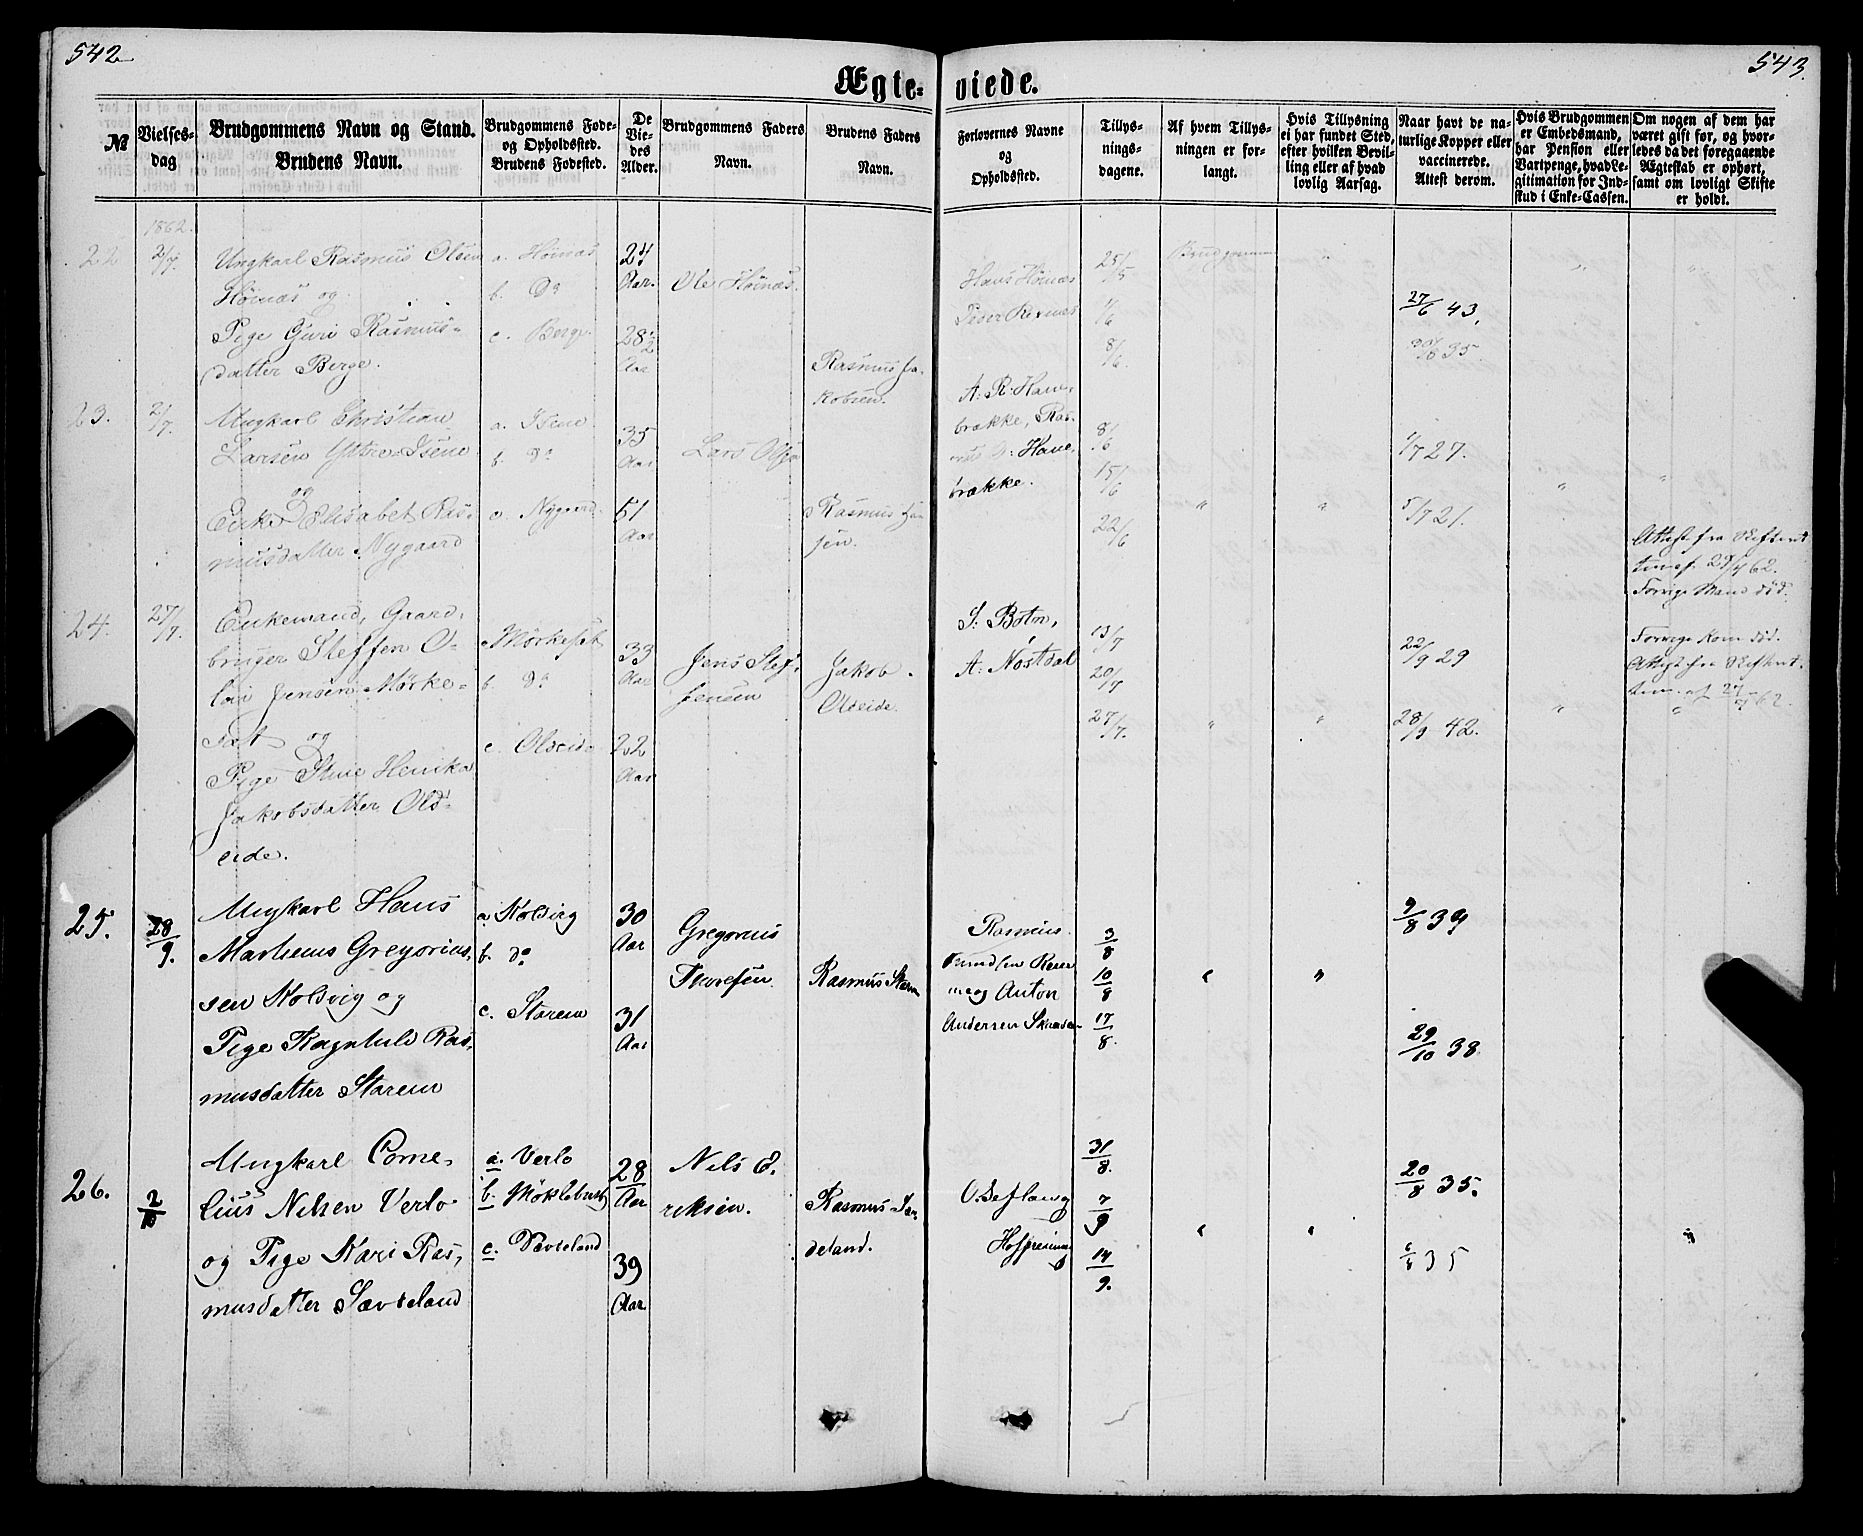 542
543.
Ægte-
viede.
№
Vielses-
dag
Brudgommens Navn og Stand.
Brudens Navn.
Brudgommens Føde-
og Opholdssted.
Brudens Fødested.
De
Vie-
des
Alder.
Brudgommens Faders
Navn.
Brudens Faders
Navn.
Forlovernes Navne
og
Opholdssted.
Tillys-
nings-
dagene.
Af hvem Tillys-
ningen er for-
langt.
Hvis Tillysning
ei har fundet Sted,
efter hvilken Bevil-
ling eller af hvad
lovlig Aarsag.
Naar havt de na-
turlige Kopper eller
vaccinerede.
Attest derom.
Hvis Brudgommen
er Embedsmand,
har Pension eller
Vartpenge, hvad Le-
gitimation for Ind-
skud i Enke-Cassen.
Om nogen af dem har
været gift før, og hvor-
ledes da det foregaaende
Ægteskab er ophørt,
samt om lovligt Skifte
er holdt.
1862.
22
2/7.
Ungkarl Rasmus Olsen
Høinæs og
Pige Guri Rasmus-
datter Berge.
a. Høinæs
b. Do
c. Berge
24
Aar.
28½
Aar
Ole Høinæs.
Rasmus Ja-
kobsen.
Hans Høinæs
Peder Rexnes
25/5
1/6
8/6.
Brudgommen
"
27/6 43.
35.
"
"
23.
2/7.
Ungkarl Christian
Larsen Ytre-Isene
og
Enke Elisabet Ras-
musdatter Nygaard
a. Isene
b. do
c. Nygaard
35
Aar
51
Aar
Lars Olsen
Rasmus Han-
sen.
A. R. Hane-
brække, Ras-
mus Hane-
brække.
8/6
15/6
22/6
"
"
1/7 27.
5/7 21.
"
"
Attest fra Skifteret-
ten af 29/4 62.
Forrige Mand død.
24.
27/7.
Enkemand, Gaard-
bruger Steffen O-
lai Jensen Mørke-
sæt og
Pige Stine Henrika
Jakobsdatter Ols-
eide.
a. Mørkesæt
b. do
c. Olseide
33
Aar
22
Aar
Jens Stef-
fensen
Jakob
Olseide.
S. Botn,
A. Nøstdal
13/7
20/7
27/7.
"
"
22/9 29
28/9 42.
"
Forrige Kone død.
Attest fra Skifteret-
ten af 62.
"
25.
28/9.
Ungkarl Hans
Marhenus Gregorius-
sen Kolsvig og
Pige Ragnhild Ras-
musdatter Starem
a. Kolsvig
b. do
c. Starem
30
Aar
31
Aar
Gregorius
Thoresen.
Rasmus Starem
Rasmus
og Anton
Andersen
3/8
10/8
17/8.
"
"
9/8 39
29/10 38
26.
2/10
Ungkarl Corne-
lius Nilsen Verlo
og Pige Kari Ras-
musdatter Sævdeland
a. Verlo
b. Møklebust
c. Sævdeland
28
Aar
39
Aar
Nils E-
riksen.
Rasmus Sæv-
deland.
31/8.
7/9
14/9.
"
"
20/8 35.
35
"